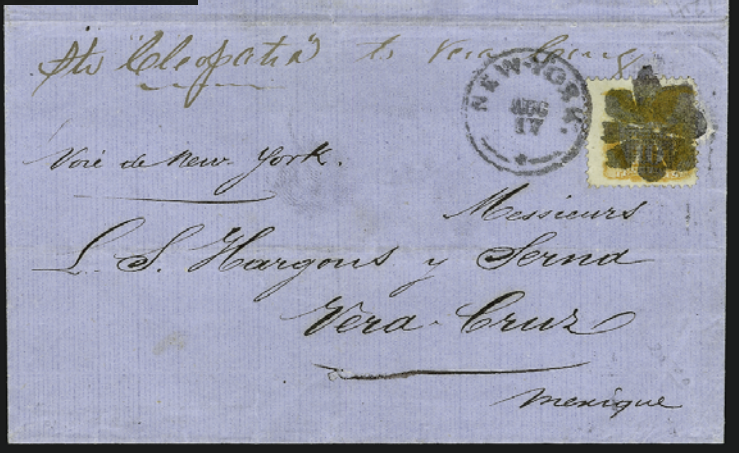 Str "Cleopatra" to Vera Cruz
NEW-YORK.
AUG
17
Voie de New-York.
Messieurs
L. S. Hargous y Serna
Vera-Cruz
Mexique